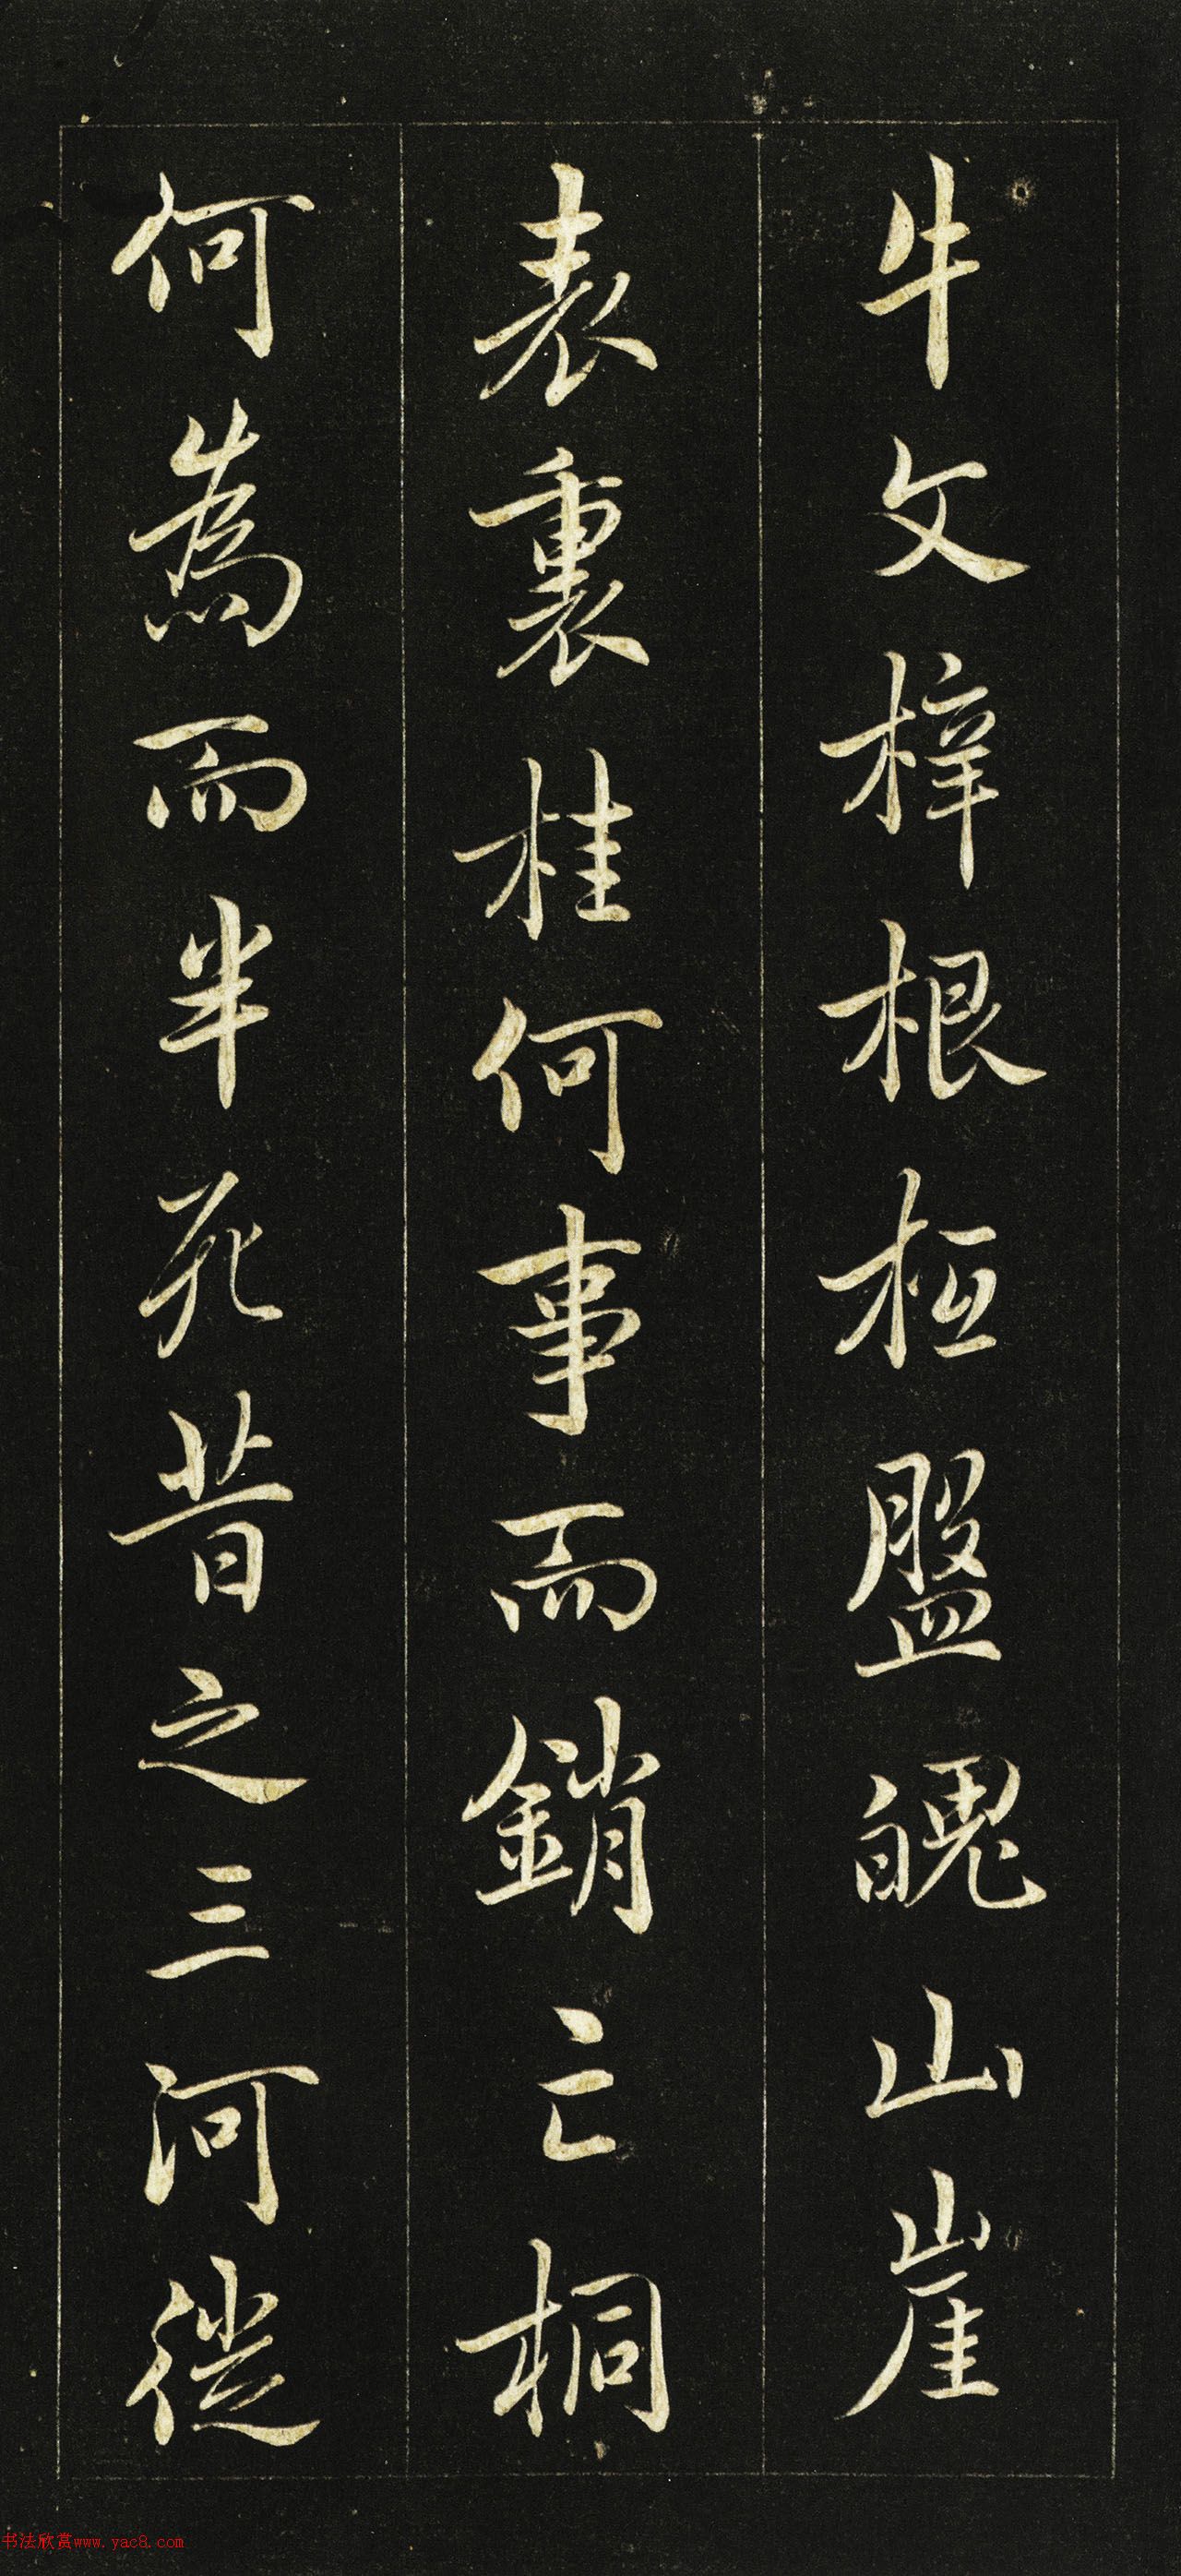 牛文梓根柢盤魄山崖
表裏桂何事而銷亡桐
何為而半死昔之三河徙
书法欣赏www.yac8.com